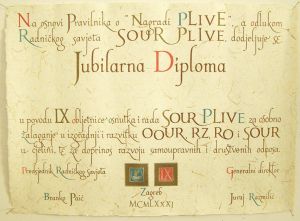 Na osnovi Pravilnika o "Nagradi PLIVE", a odlukom
Radničkog savjeta SOUR PLIVE, dodjeljuje se
Jubilarna Diploma
u povodu IX obljetnice osnutka i rada SOUR PLIVE za osobno
zalaganje u izgradnji i razvitku OOUR, RZ, RO i SOUR
u cjelini, te za doprinos razvoju samoupravnih i društvenih odnosa.
Predsjednik Radničkog savjeta
Generalni direktor
IX
Branko Puić
Zagreb
Juraj
MCMLXXXI